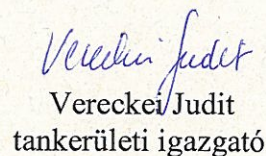 Vereckei Judit
Vereckei Judit
tankerületi igazgató